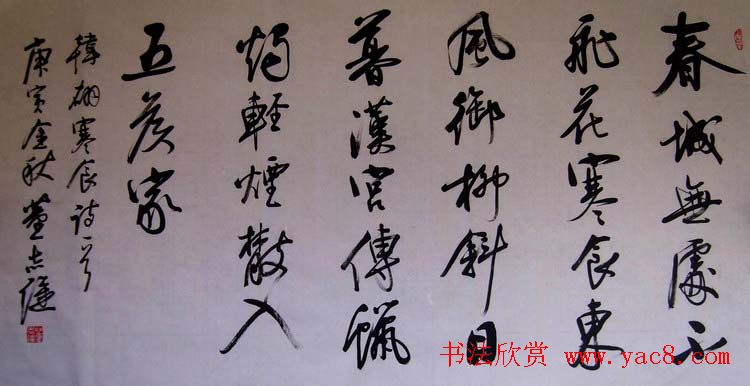 春城無處不
飛花寒食東
風御柳斜日
暮漢宮傳蠟
燭輕煙散入
五侯家
韓翃寒食詩一首
庚寅金秋董志謹
书法欣赏 www.yac8.com